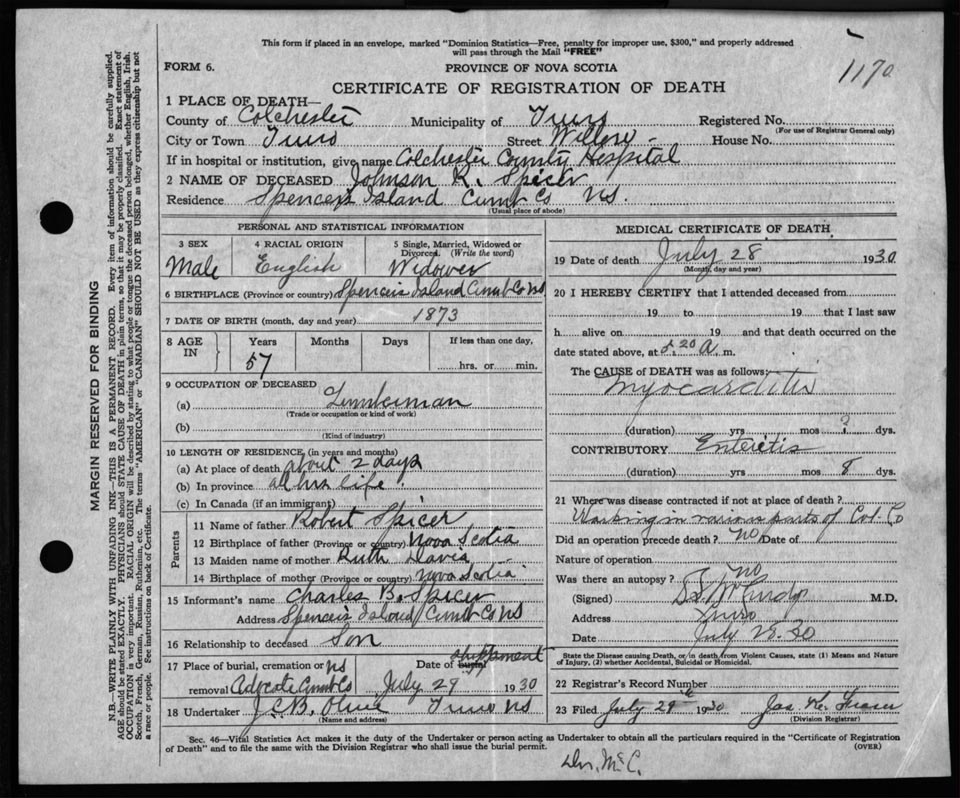 This form if placed in an envelope, marked "Dominion Statistics—Free, penalty for improper use, $300," and properly addressed
will pass through the Mail "FREE"
FORM 6.
PROVINCE OF NOVA SCOTIA
1170
CERTIFICATE OF REGISTRATION OF DEATH
1 PLACE OF DEATH—
County of Colchester Municipality of Truro Registered No.
(For use of Registrar General only)
City or Town Truro Street Willow - House No.
If in hospital or institution, give name Colchester County Hospital
2 NAME OF DECEASED Johnson R. Spicer
Residence Spencer's Island Cumb Co NS.
(Usual place of abode)
PERSONAL AND STATISTICAL INFORMATION
3 SEX 4 RACIAL ORIGIN 5 Single, Married, Widowed or
Divorced. (Write the word)
Male English Widower
6 BIRTHPLACE (Province or country) Spencer's Island Cumb Co NS
7 DATE OF BIRTH (month, day and year) 1873
8 AGE IN Years Months Days If less than one day,
57 hrs. or min.
9 OCCUPATION OF DECEASED
(a) Lumberman
(Trade or occupation or kind of work)
(b)
(Kind of industry)
10 LENGTH OF RESIDENCE (in years and months)
(a) At place of death about 2 days
(b) In province all his life
(c) In Canada (if an immigrant)
Parents
11 Name of father Robert Spicer
12 Birthplace of father (Province or country) Nova Scotia
13 Maiden name of mother Ruth Davis
14 Birthplace of mother (Province or country) Nova Scotia
15 Informant's name Charles B. Spicer
Address Spencer's Island Cumb Co NS
16 Relationship to deceased Son
17 Place of burial, cremation or NS Date of burial shippment
removal Advocate Cumb Co July 29 1930
18 Undertaker J.C.B. Olive Truro NS
(Name and address)
MEDICAL CERTIFICATE OF DEATH
19 Date of death July 28 1930
(Month, day and year)
20 I HEREBY CERTIFY that I attended deceased from
19 to 19 that I last saw
h alive on 19 and that death occurred on the
date stated above, at 5.20 A. m.
The CAUSE of DEATH was as follows:
Myocarditis
(duration) yrs mos ? dys.
CONTRIBUTORY Enteritis
(duration) yrs mos 8 dys.
21 Where was disease contracted if not at place of death?
Working in various parts of Col. Co
Did an operation precede death? no Date of
Nature of operation
Was there an autopsy? no
(Signed) M.D.
Address Truro
Date July 28.30
State the Disease causing Death, or in death from Violent Causes, state (1) Means and Nature
of Injury, (2) whether Accidental, Suicidal or Homicidal.
22 Registrar's Record Number
23 Filed July 28 1930 Jas
(Division Registrar)
Sec. 46—Vital Statistics Act makes it the duty of the Undertaker or person acting as Undertaker to obtain all the particulars required in the "Certificate of Registration
of Death" and to file the same with the Division Registrar who shall issue the burial permit.
(OVER)
Dr. McC.
MARGIN RESERVED FOR BINDING
N.B.—WRITE PLAINLY WITH UNFADING INK—THIS IS A PERMANENT RECORD. Every item of information should be carefully supplied.
AGE should be stated EXACTLY. PHYSICIANS should STATE CAUSE OF DEATH in plain terms, so that it may be properly classified. Exact statement of
OCCUPATION is very important. RACIAL ORIGIN will be described by stating to what people or tongue the deceased person belonged, whether English, Irish,
Scotch, French, German, Russian, Ruthenian, etc. The terms "AMERICAN" or "CANADIAN" SHOULD NOT BE USED as they express citizenship but not
a race or people. See instructions on back of Certificate.